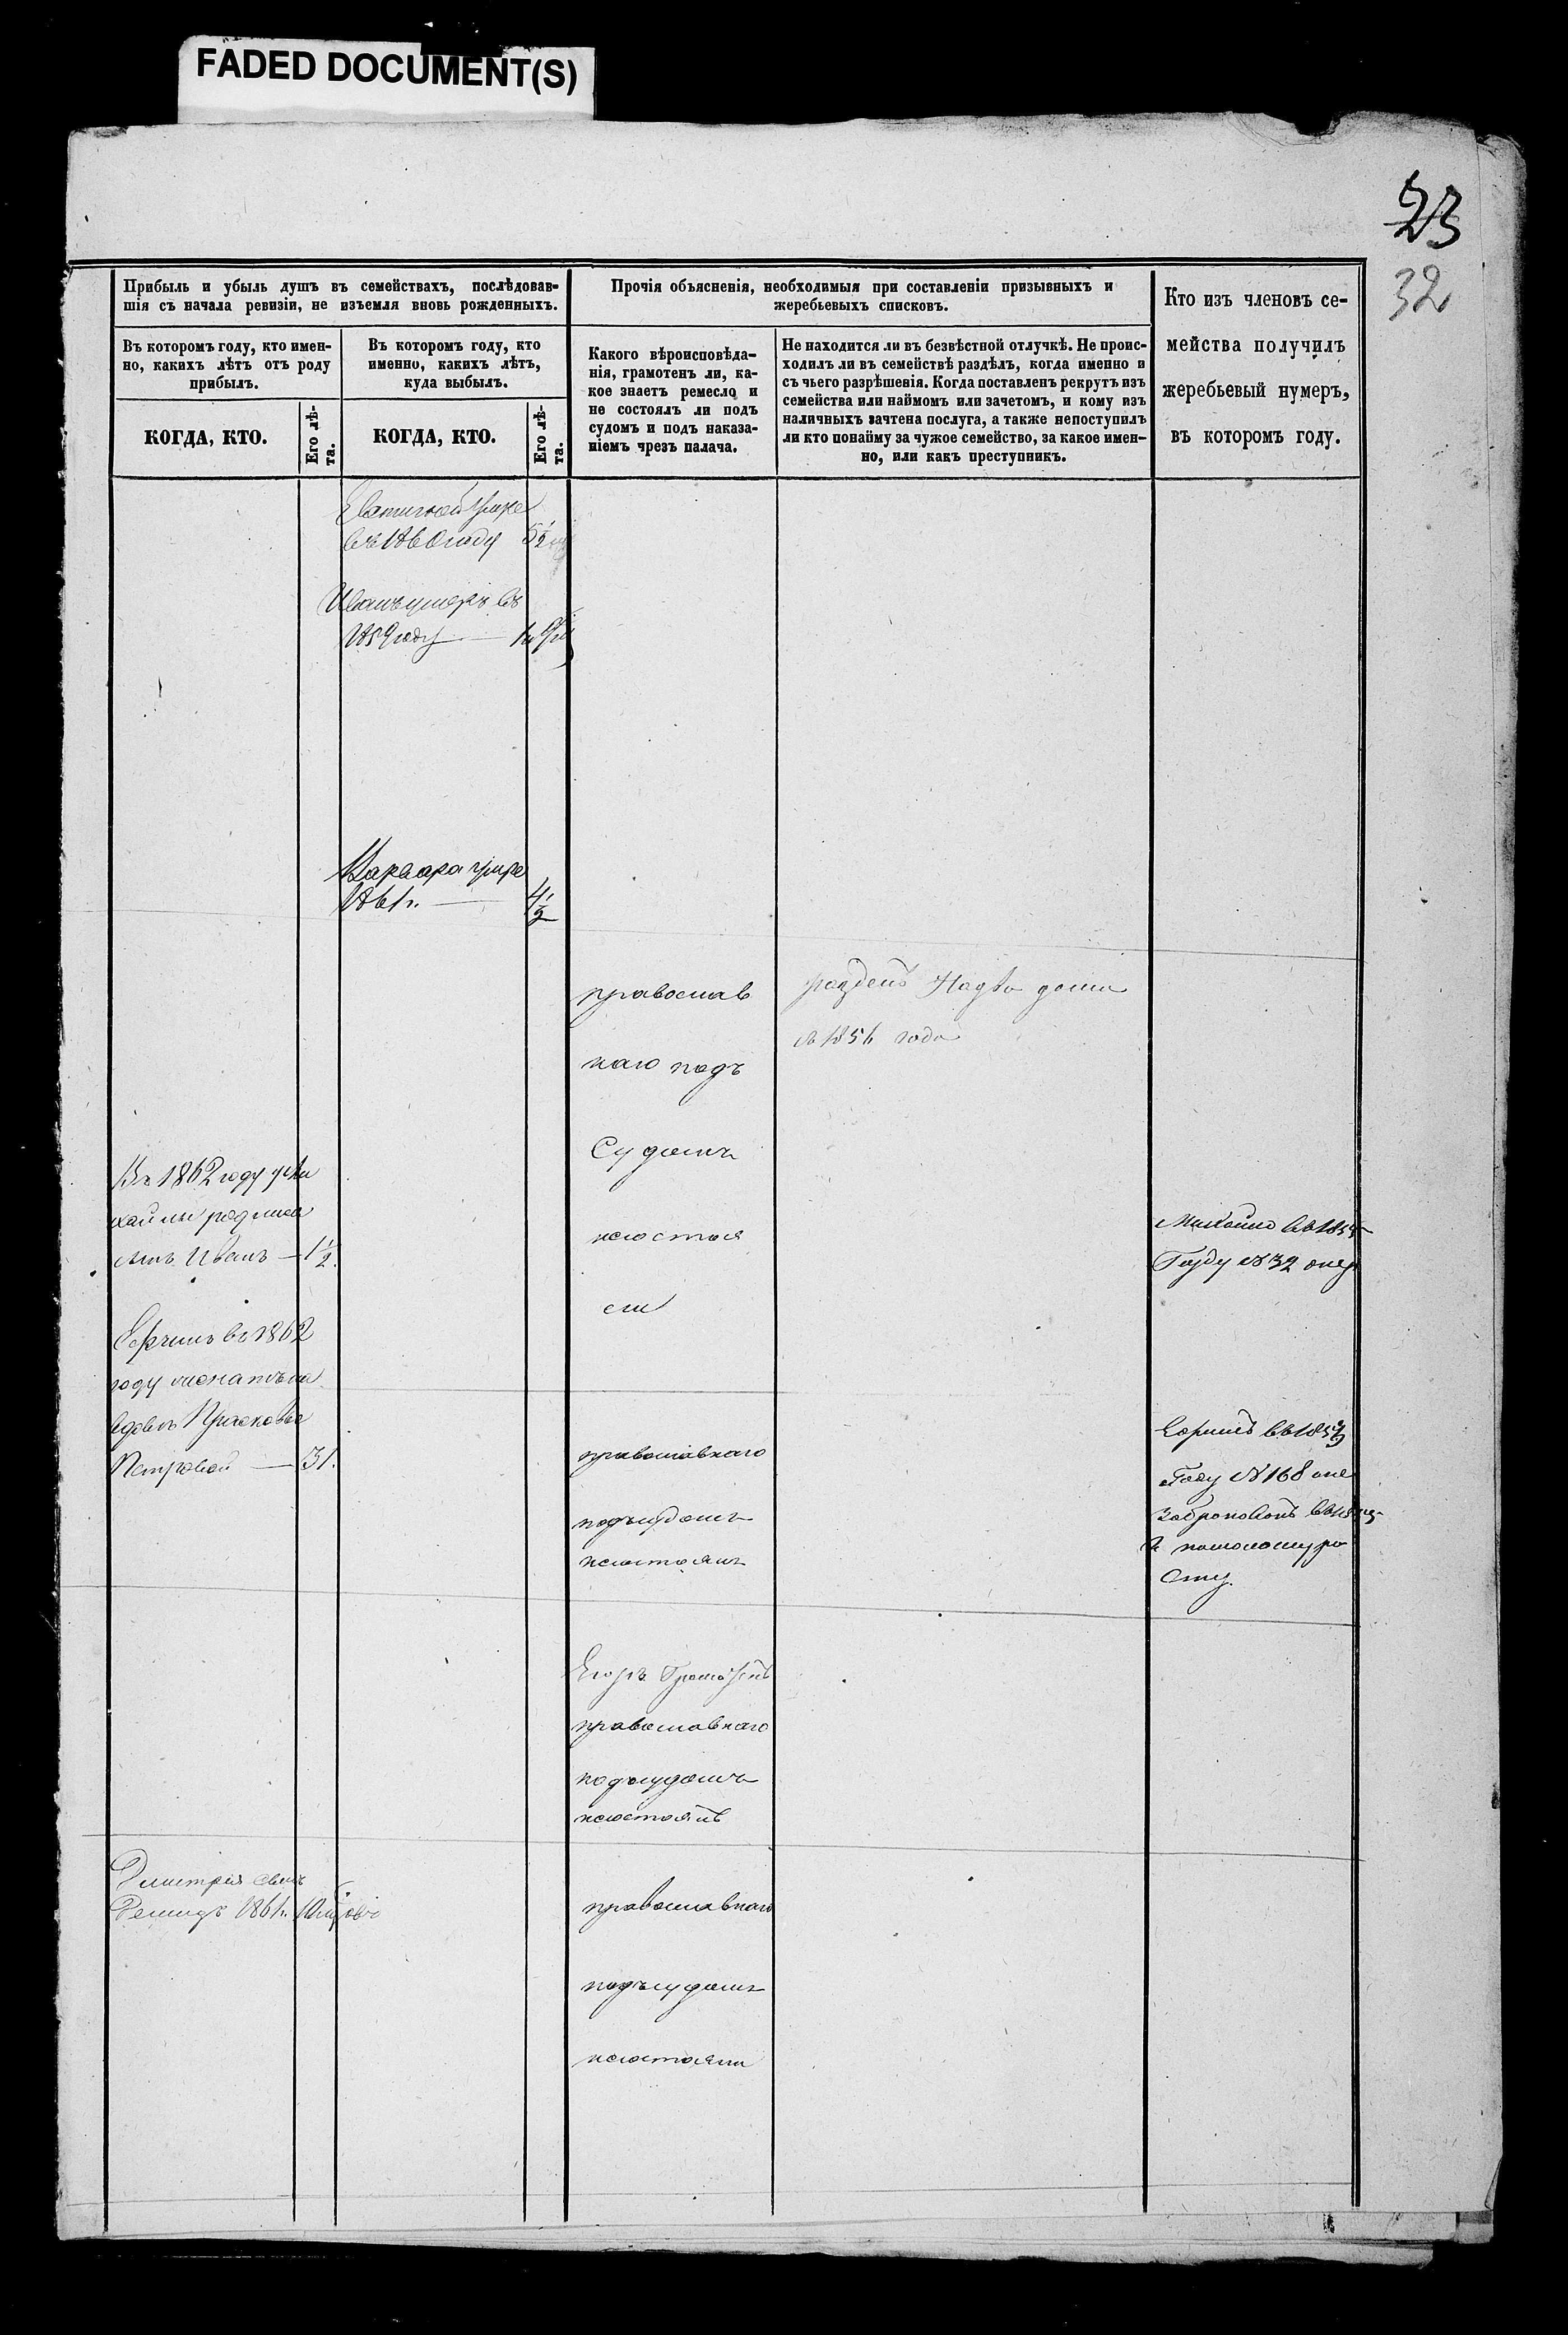 FADED DOCUMENT(S)
23
32
Прибыль и убыль душъ въ семействахъ, послѣдовав-
шія съ начала ревизіи, не изъемля вновь рожденныхъ.
Въ которомъ году, кто имен-
но, какихъ лѣтъ отъ роду
прибылъ.
КОГДА, КТО.
Его лѣ-
та.
Въ которомъ году, кто
именно, какихъ лѣтъ,
куда выбылъ.
КОГДА, КТО.
Его лѣ-
та.
Прочія объясненія, необходимыя при составленіи призывныхъ и
жеребьевыхъ списковъ.
Какого вѣроисповѣда-
нія, грамотенъ ли, ка-
кое знаетъ ремесло и
не состоялъ ли подъ
судомъ и подъ наказа-
ніемъ чрезъ палача.
Не находится ли въ безвѣстной отлучкѣ. Не проис-
ходилъ ли въ семействѣ раздѣлъ, когда именно и
съ чьего разрѣшенія. Когда поставленъ рекрутъ изъ
семейства или наймомъ или зачетомъ, и кому изъ
наличныхъ зачтена послуга, а также непоступилъ
ли кто понайму за чужое семейство, за какое имен-
но, или какъ преступникъ.
Кто изъ членовъ се-
мейства получилъ
жеребьевый нумеръ,
въ которомъ году.
въ 1860 году 5½
Иванъ умеръ въ
1859 году
Варвара умре
1861 г. 4½
православ
наго подъ
Судомъ
несостоя
ли
1856 года
Въ 1862 году у Ми
хайлы родился
сынъ Иванъ — 1½.
въ 1862
году женатъ на
вдовѣ Прасковье
Петровой — 31.
Михайло
Году № 32
православнаго
подъ судомъ
несостоялъ
Году № 168
Егоръ
православнаго
подъ судомъ
несостоялъ
Дмитрія сынъ
1861 г.
православнаго
подъ судомъ
несостояли